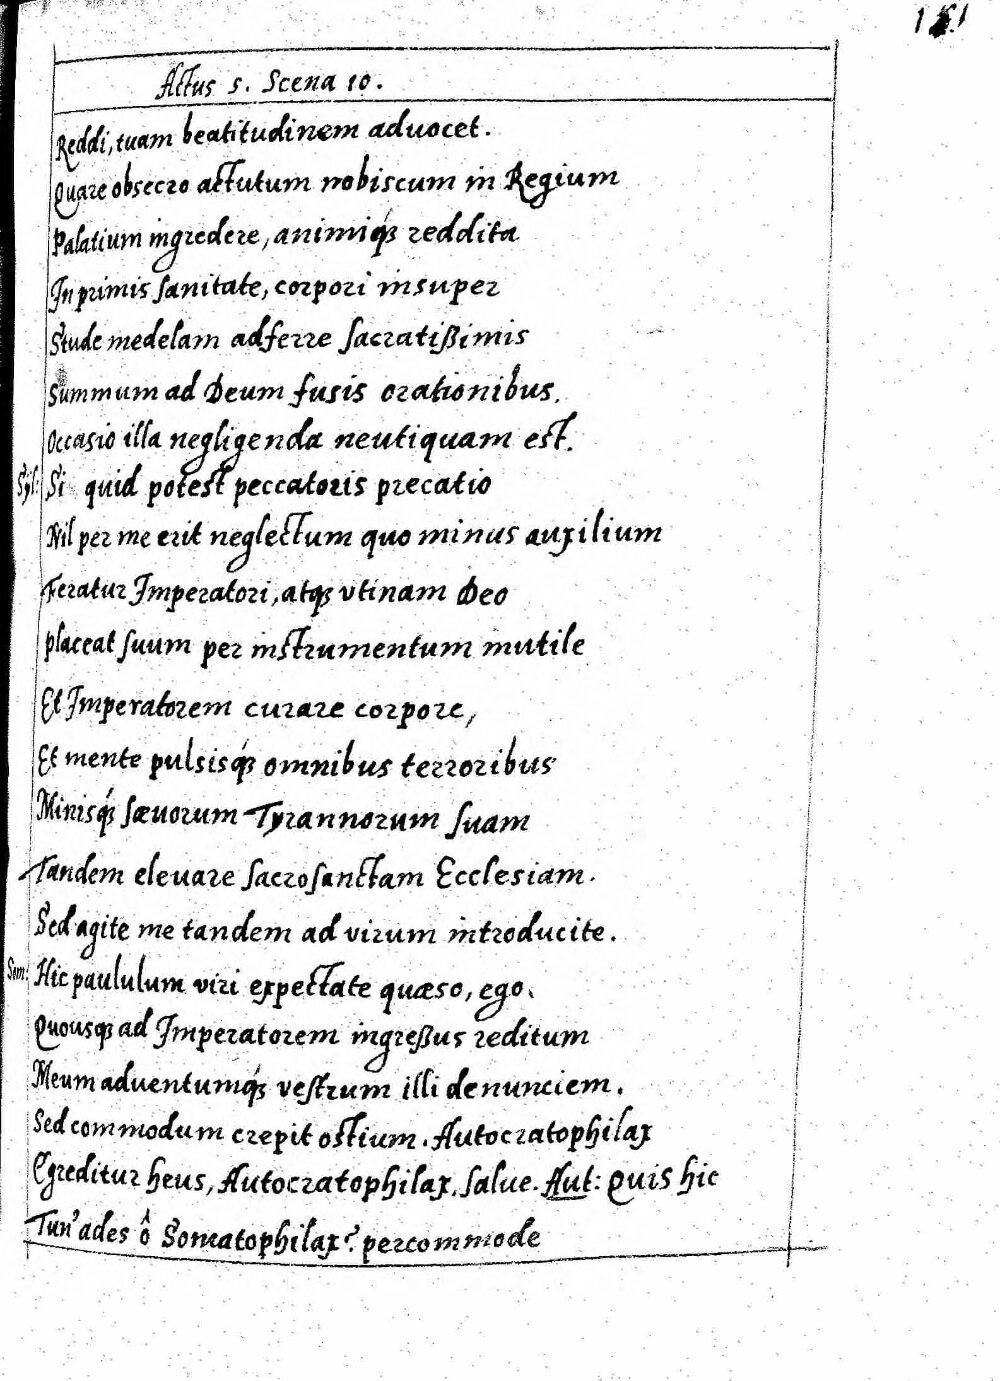 Actus 5. Scena 10.
Reddi, tuam beatitudinem aduocet.
Quare obsecro actutum nobiscum in Regium
Palatium ingredere, animiq́ʒ reddita
Inprimis ſanitate, corpori insuper
Stude medelam adferre ſacratißimis
Summum ad Deum fusis orationibus.
Occasio illa negligenda neutiquam est.
Syl: Si quid potest peccatoris precatio
Nil per me erit neglectum quo minus auxilium
Feratur Imperatori, atqʒ vtinam Deo
Placeat ſuum per instrumentum mutile
Et Imperatorem curare corpore,
Et mente pulsisq́ʒ omnibus terroribus
Minisq́ʒ ſæuorum Tyrannorum ſuam
Tandem eleuare ſacroſanctam Ecclesiam.
Sed agite me tandem ad virum introducite.
Som: Hic paululum viri expectate quæso, ego.
Quousqʒ ad Imperatorem ingreßus reditum
Meum aduentumq́ʒ veſtrum illi denunciem.
Sed commodum crepit ostium. Autocratophilax
Egreditur heus, Autocratophilax, ſalue. Aut: Quis hic
Tun' ades ô Somatophilax? percommode